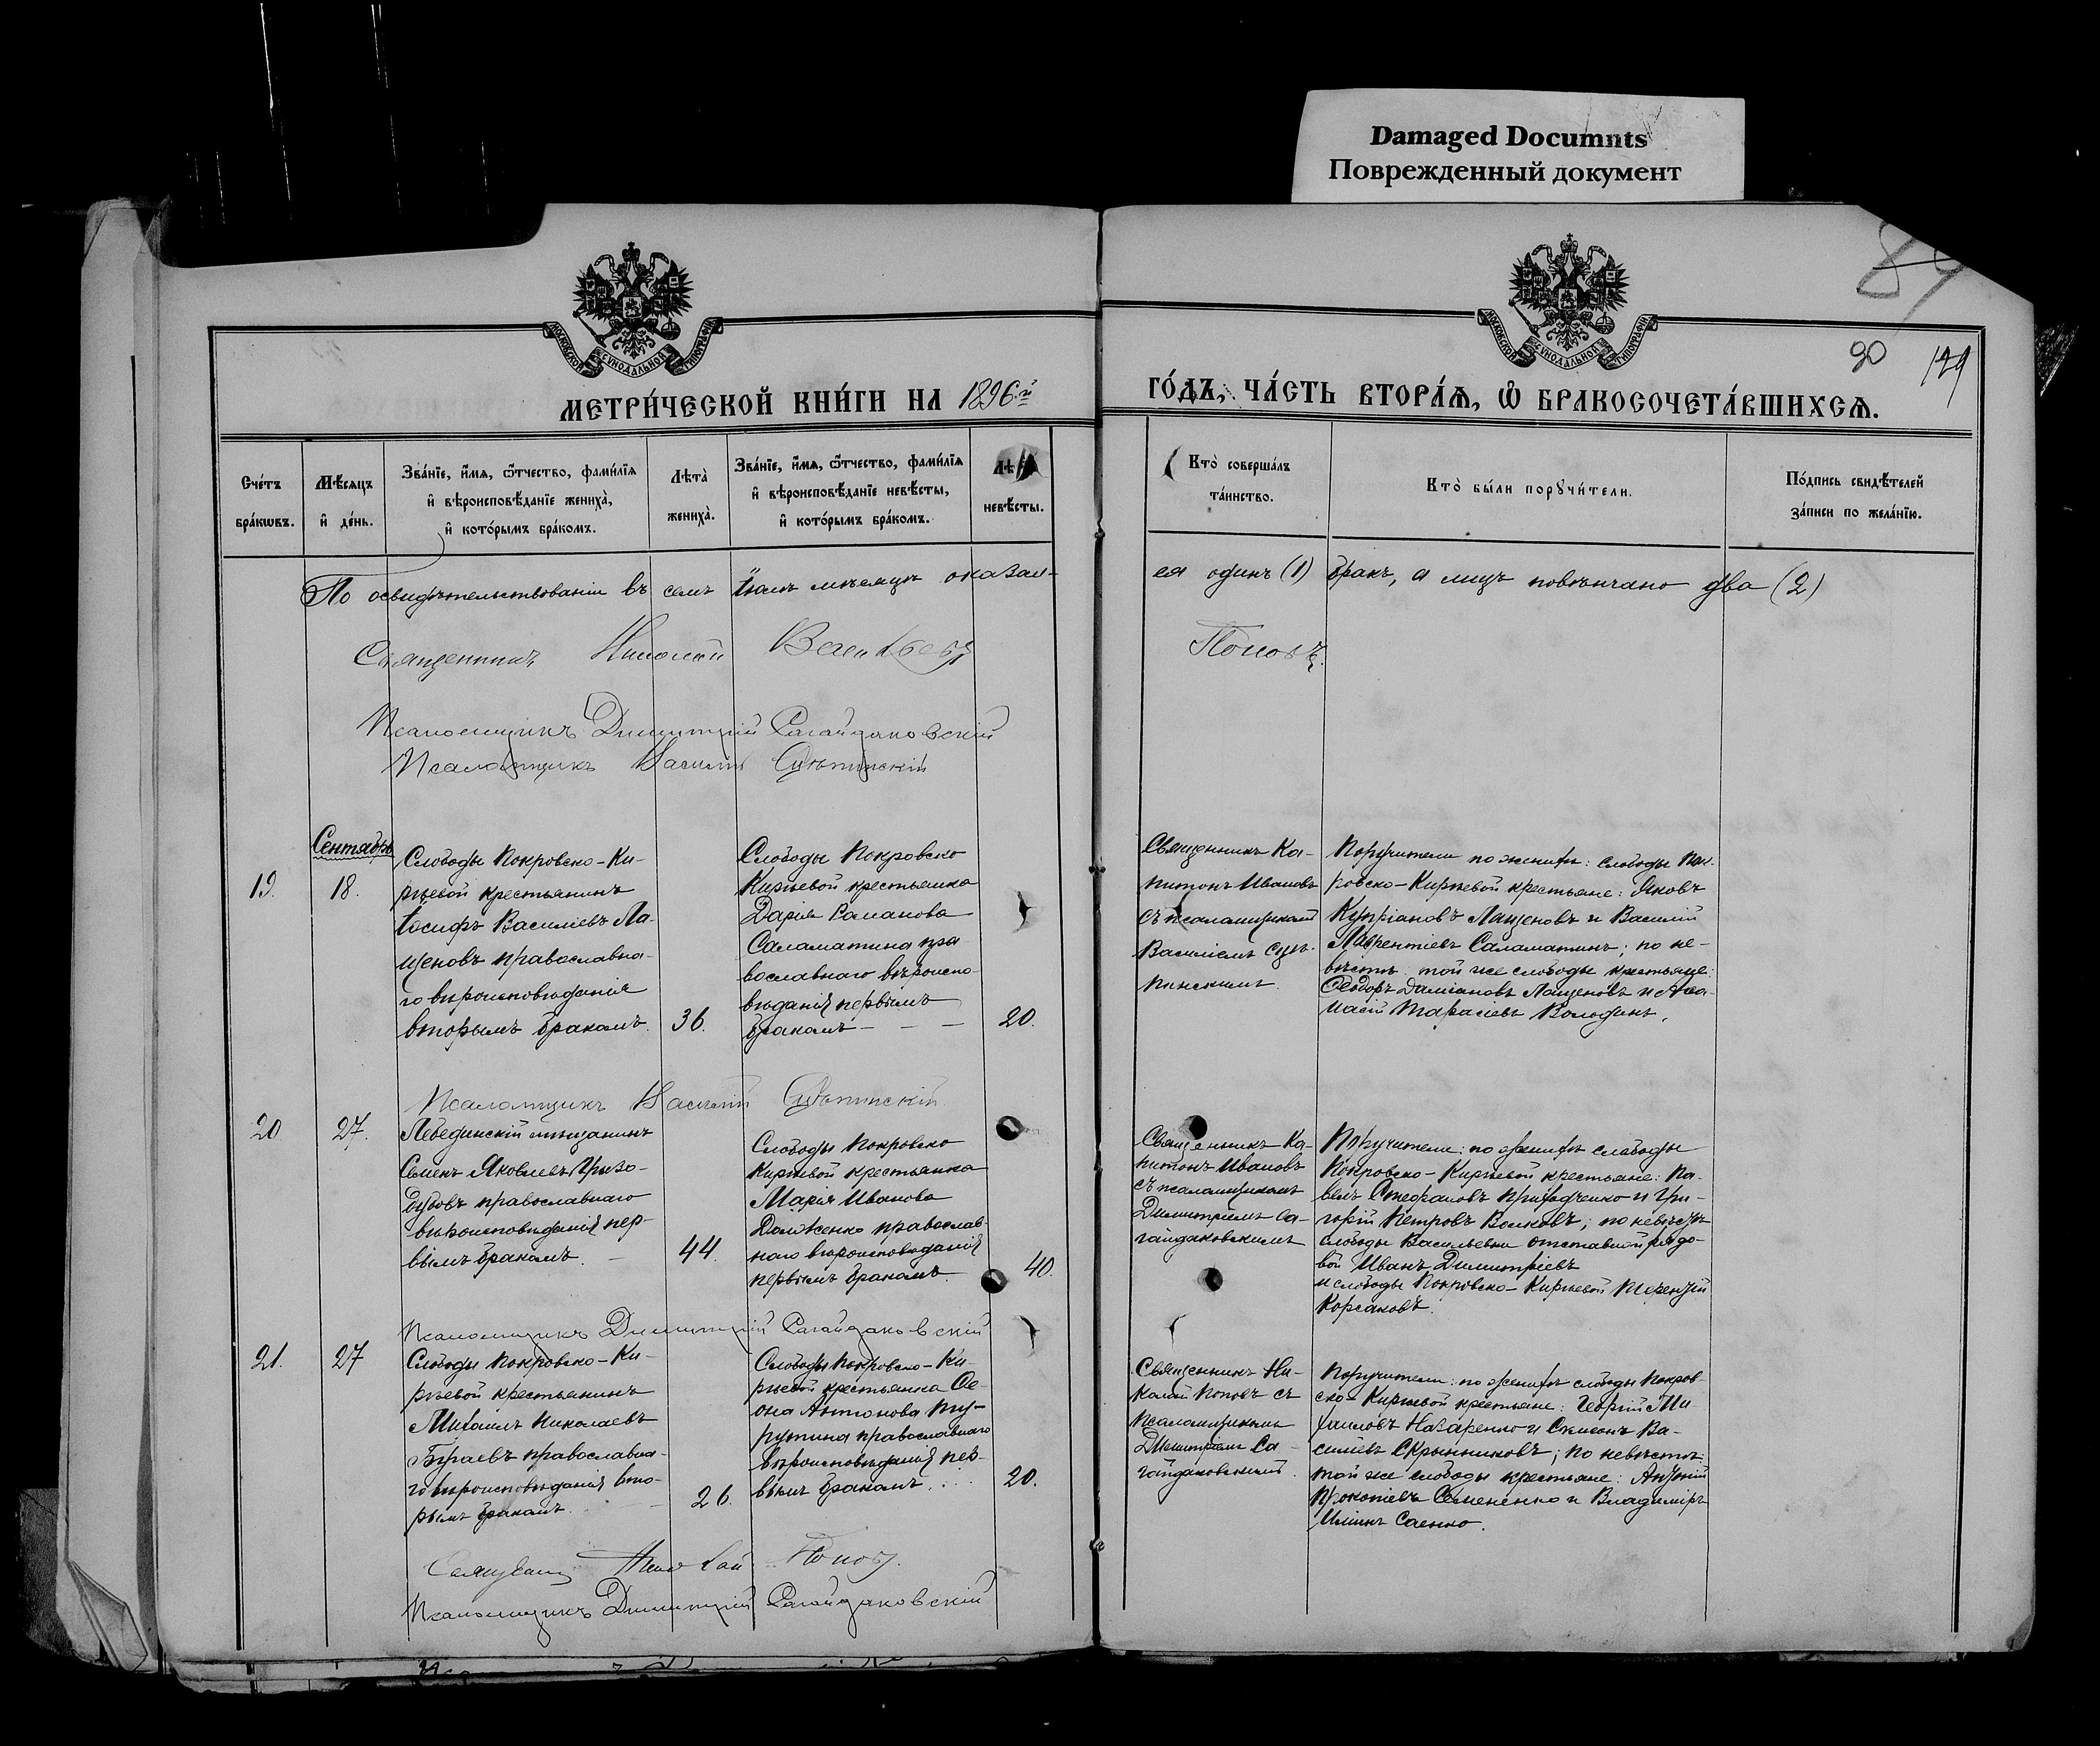 Damaged Documnts
Поврежденный документ
84
90 129
МЕТРИ́ЧЕСКОЙ КНИ́ГИ НА 1896.й
ГО́ДЪ, ЧА́СТЬ ВТОРА́Я, Ѡ БРАКОСОЧЕТА́ВШИХСЯ.
МОСКОВСКОЙ СѴНОДАЛЬНОЙ ТИПОГРАФІИ
МОСКОВСКОЙ СѴНОДАЛЬНОЙ ТИПОГРАФІИ
Сче́тъ
бра́кωвъ.
Мѣ́сяцъ
и҆ де́нь.
Зва́нїе, и҆́мя, ѻ҆́тчество, фами́лїя
и҆ вѣроисповѣ́данїе жениха̀,
и҆ кото́рымъ бра́комъ.
Лѣ́та̀
жениха̀.
Зва́нїе, и҆́мя, ѻ҆́тчество, фами́лїя
и҆ вѣроисповѣ́данїе невѣ́сты,
и҆ кото́рымъ бра́комъ.
Лѣ
невѣ́сты.
Кто̀ соверша́лъ
та́инство.
Кто̀ бы́ли порꙋчи́тели.
По́дпись свидѣ́телей
за́писи по жела́нїю.
По освидѣтельствованіи въ семъ іюлѣ мѣсяцѣ оказал-
ся одинъ (1) бракъ, а лицъ повѣнчано два (2)
Священникъ Николай Васильевъ
Поповъ.
Псаломщикъ Димитрій Сагайдаковскій
Псаломщикъ Василій Сцепинскій
Сентябрь
19.
18.
Слободы Покровско-Ки-
рѣевой крестьянинъ
Іосифъ Василіевъ Ла-
щеновъ православна-
го вѣроисповѣданія
вторымъ бракомъ.
36.
Слободы Покровско
Кирѣевой крестьянка
Дарія Романова
Саламатина пра
вославнаго вѣроиспо-
вѣданія первымъ
бракомъ - - -
20.
Священникъ Ка-
питонъ Ивановъ
съ псаломщикомъ
Василіемъ Сце-
пинскимъ
Поручители по женихѣ: слободы Пок-
ровско-Кирѣевой крестьяне: Яковъ
Купріановъ Лащеновъ и Василій
Лаврентіевъ Саламатинъ; по не-
вѣстѣ той же слободы крестьяне:
Ѳеодоръ Даміановъ Лащеновъ и Аѳа-
насій Тарасіевъ Володинъ.
Псаломщикъ Василій Сцепинскій
20
27.
Лебединскій мѣщанинъ
Семенъ Яковлевъ Грызо-
дубовъ православнаго
вѣроисповѣданія пер-
вымъ бракомъ. -
44.
Слободы Покровско
Кирѣевой крестьянка
Марія Иванова
Долженко православ-
наго вѣроисповѣданія
первымъ бракомъ.
40.
Священникъ Ка-
питонъ Ивановъ
съ псаломщикомъ
Димитріемъ Са-
гайдаковскимъ
Поручители: по женихѣ слободы
Покровско-Кирѣевой крестьяне: Па-
велъ Стефановъ Приходченко и Гри-
горій Петровъ Волковъ; по невѣстѣ
слободы Васильевки отставной рядо-
вой Иванъ Димитріевъ
и слободы Покровско-Кирѣевой Терентій
Корсаковъ.
Псаломщикъ Димитрій Сагайдаковскій
21.
27
Слободы Покровско-Ки-
рѣевой крестьянинъ
Михаилъ Николаевъ
Бураевъ православна-
го вѣроисповѣданія вто-
рымъ бракомъ.
26.
Слободы Покровско-Ки-
рѣевой крестьянка Ѳе-
она Антонова Ту-
рутина православнаго
вѣроисповѣданія пер-
вымъ бракомъ
20.
Священникъ Ни-
колай Поповъ съ
псаломщикомъ
Димитріемъ Са-
гайдаковскимъ.
Поручители: по женихѣ слободы Покров-
ско-Кирѣевой крестьяне: Георгій Ми-
хаиловъ Назаренко и Симеонъ Ва-
силіевъ Скрынниковъ; по невѣстѣ:
той же слободы крестьяне: Антоній
Прокопіевъ Семененко и Владиміръ
Ильинъ Саенко.
Священникъ Николай Поповъ.
Псаломщикъ Димитрій Сагайдаковскій